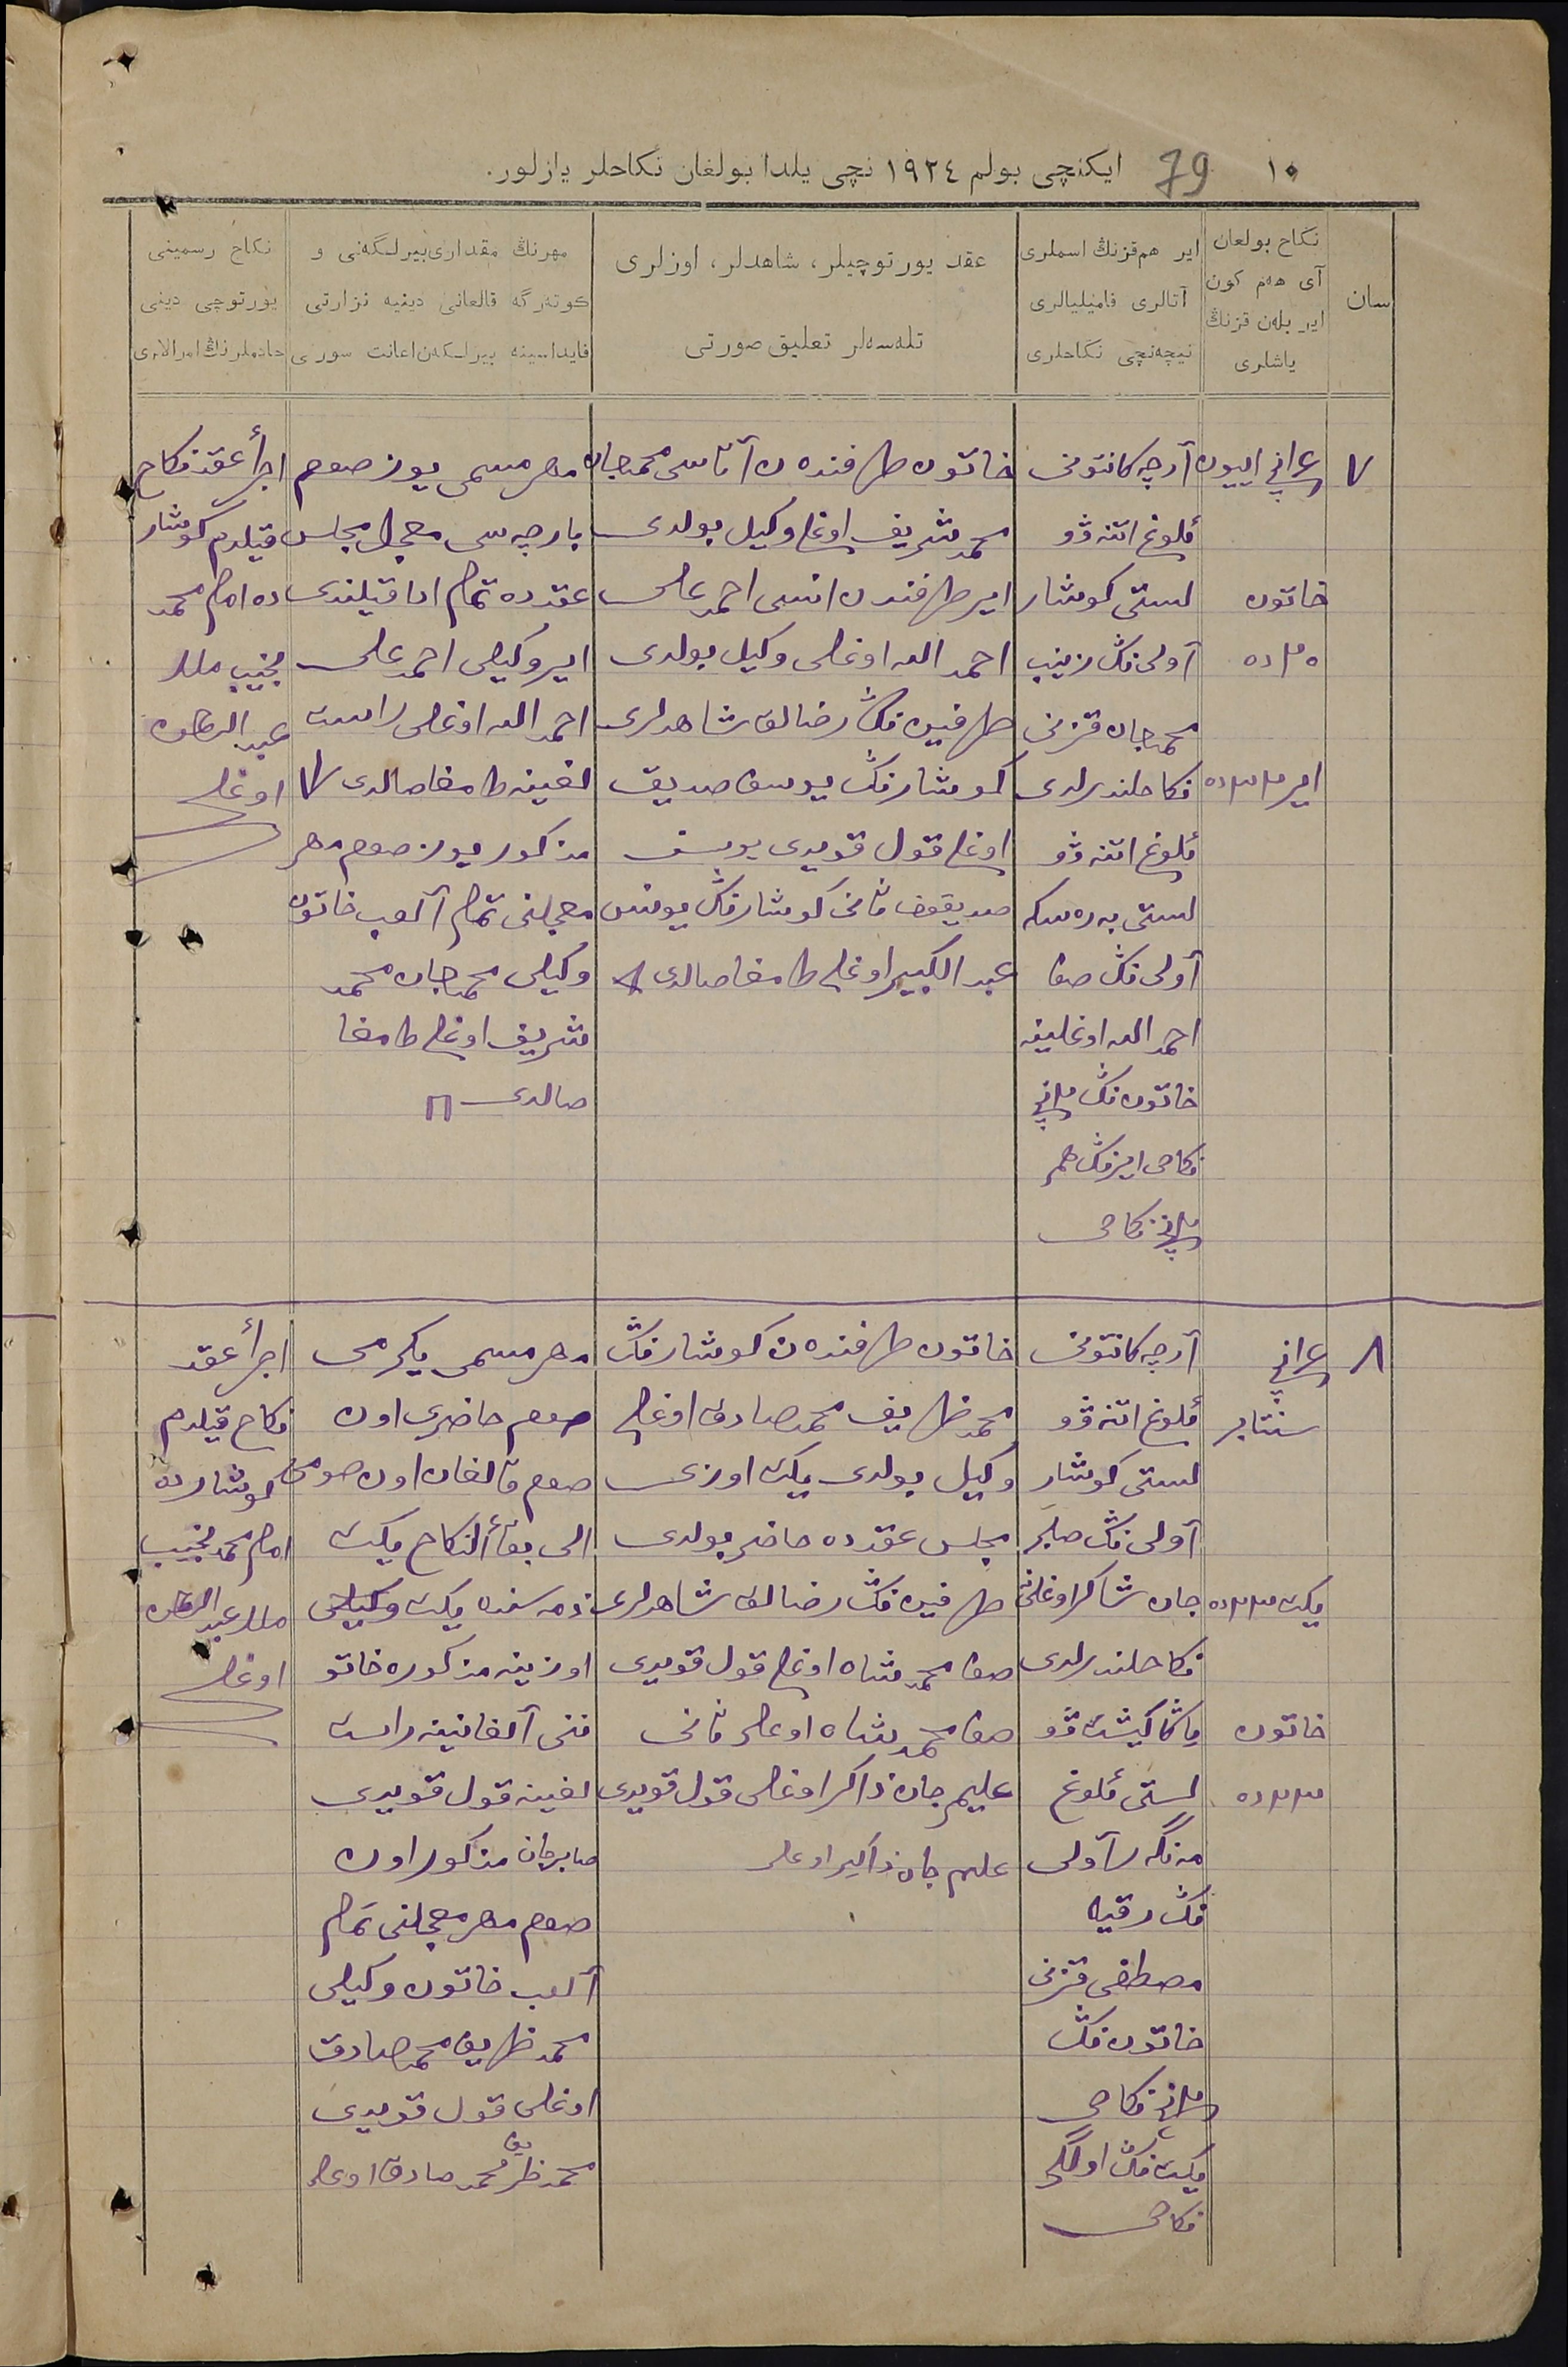 ١٠ 79 ايكنچی بولم ١٩٢٤ نچی يلدا بولغان نكاحلر يازلور.
سان
نكاح بولعان
آی هم كون
اير بلەن قزنڭ
ياشلری
اير هم قزنڭ اسملری
آتالری فاميليالری
نيچەنچی نكاحلری
عقد يورتوچيلر، شاهدلر، اوزلری
تلەسەلر تعليق صورتی
مهرنڭ مقداری بيرلگەنی و
كوتەرگە قالعانی دينيه نزارتی
فايداسينه بيرلگەن اعانت سوری
نكاح رسمينی
يورتوچی دينی
خادملرنڭ امزالاری
٧
٤نچی اييون
خاتون
٢٠ ده
اير ٢٣ ده
آرچه كانتونی
ئلوغ اتنه ڤو
لستی كوشار
آولی نڭ زينب
محمدجان قزنی
نكاحلندرلدی
ئلوغ اتنه ڤو
لستی بەرەسكە
آولی نڭ صفا
احمد الله اوغلينه
خاتون نڭ ٢نچی
نكاحی ايرنڭ هم
٢نچی نكاحی
خاتون طرفندەن آتاسی محمدجان
محمد شريف اوغلی وكيل بولدی
اير طرفندن انسی احمد علی
احمد الله اوغلی وكيل بولدی
طرفين نڭ رضالق شاهدلری
كوشارنڭ يوسف صديق
اوغلی قول قويدی يوسف
صديقوف ثانی كوشارنڭ يونس
عبد الكبير اوغلی طامغا صالدی
مهر مسمی يوز صوم
بارچه سی معجل مجلس
عقدده تمام ادا قيلندی
اير وكيلی احمد علی
احمد الله اوغلی راست
لغينه طامغا صالدی ٧
مذكور يوز صوم مهر
معجلنی تمام آلوب خاتون
وكيلی محمدجان محمد
شريف اوغلی طامغا
صالدی П
اجرأ عقد نكاح
قيلدم كوشار
ده امام محمد
نجيب ملا
عبد الرحمان
اوغلی
٨
٤نچی
سنتابر
يكت ٢٣ ده
خاتون
٢٣ ده
آرچه كانتونی
ئلوغ اتنه ڤو
لستی كوشار
آولی نڭ صابر
جان شاكر اوغلنی
نكاحلندرلدی
لستی ئلوغ
منگەر آولی
نڭ رقيه
مصطفی قزنی
خاتون نڭ
٢نچی نكاحی
يكت نڭ اولگی
نكاحی
خاتون طرفندەن كوشارنڭ
محمد ظريف محمد صادق اوغلی
وكيل بولدی يكت اوزی
مجلس عقدده حاضر بولدی
طرفين نڭ رضالق شاهدلری
صفا محمد شاه اوغلی قول قويدی
صفا محمد شاه اوغلی ثانی
عليم جان ذاكر اوغلی قول قويدی
عليم جان ذاكير اوغلی
مهر مسمی يگرمی
صوم حاضری اون
صوم قالغان اون صومی
الی بقأ النكاح يكت
ذمه سنده يكت وكيلی
اوزينه مذكوره خاتو
ننی آلغانينه راست
لغينه قول قويدی
صابرجان مذكور اون
صوم مهر معجلنی تمام
آلوب خاتون وكيلی
محمد ظريف محمد صادق
اوغلی قول قويدی
محمد ظريف محمد صادق اوغلی
اجرأ عقد
نكاح قيلدم
كوشارده
امام محمد نجيب
ملا عبد الرحمان
اوغلی